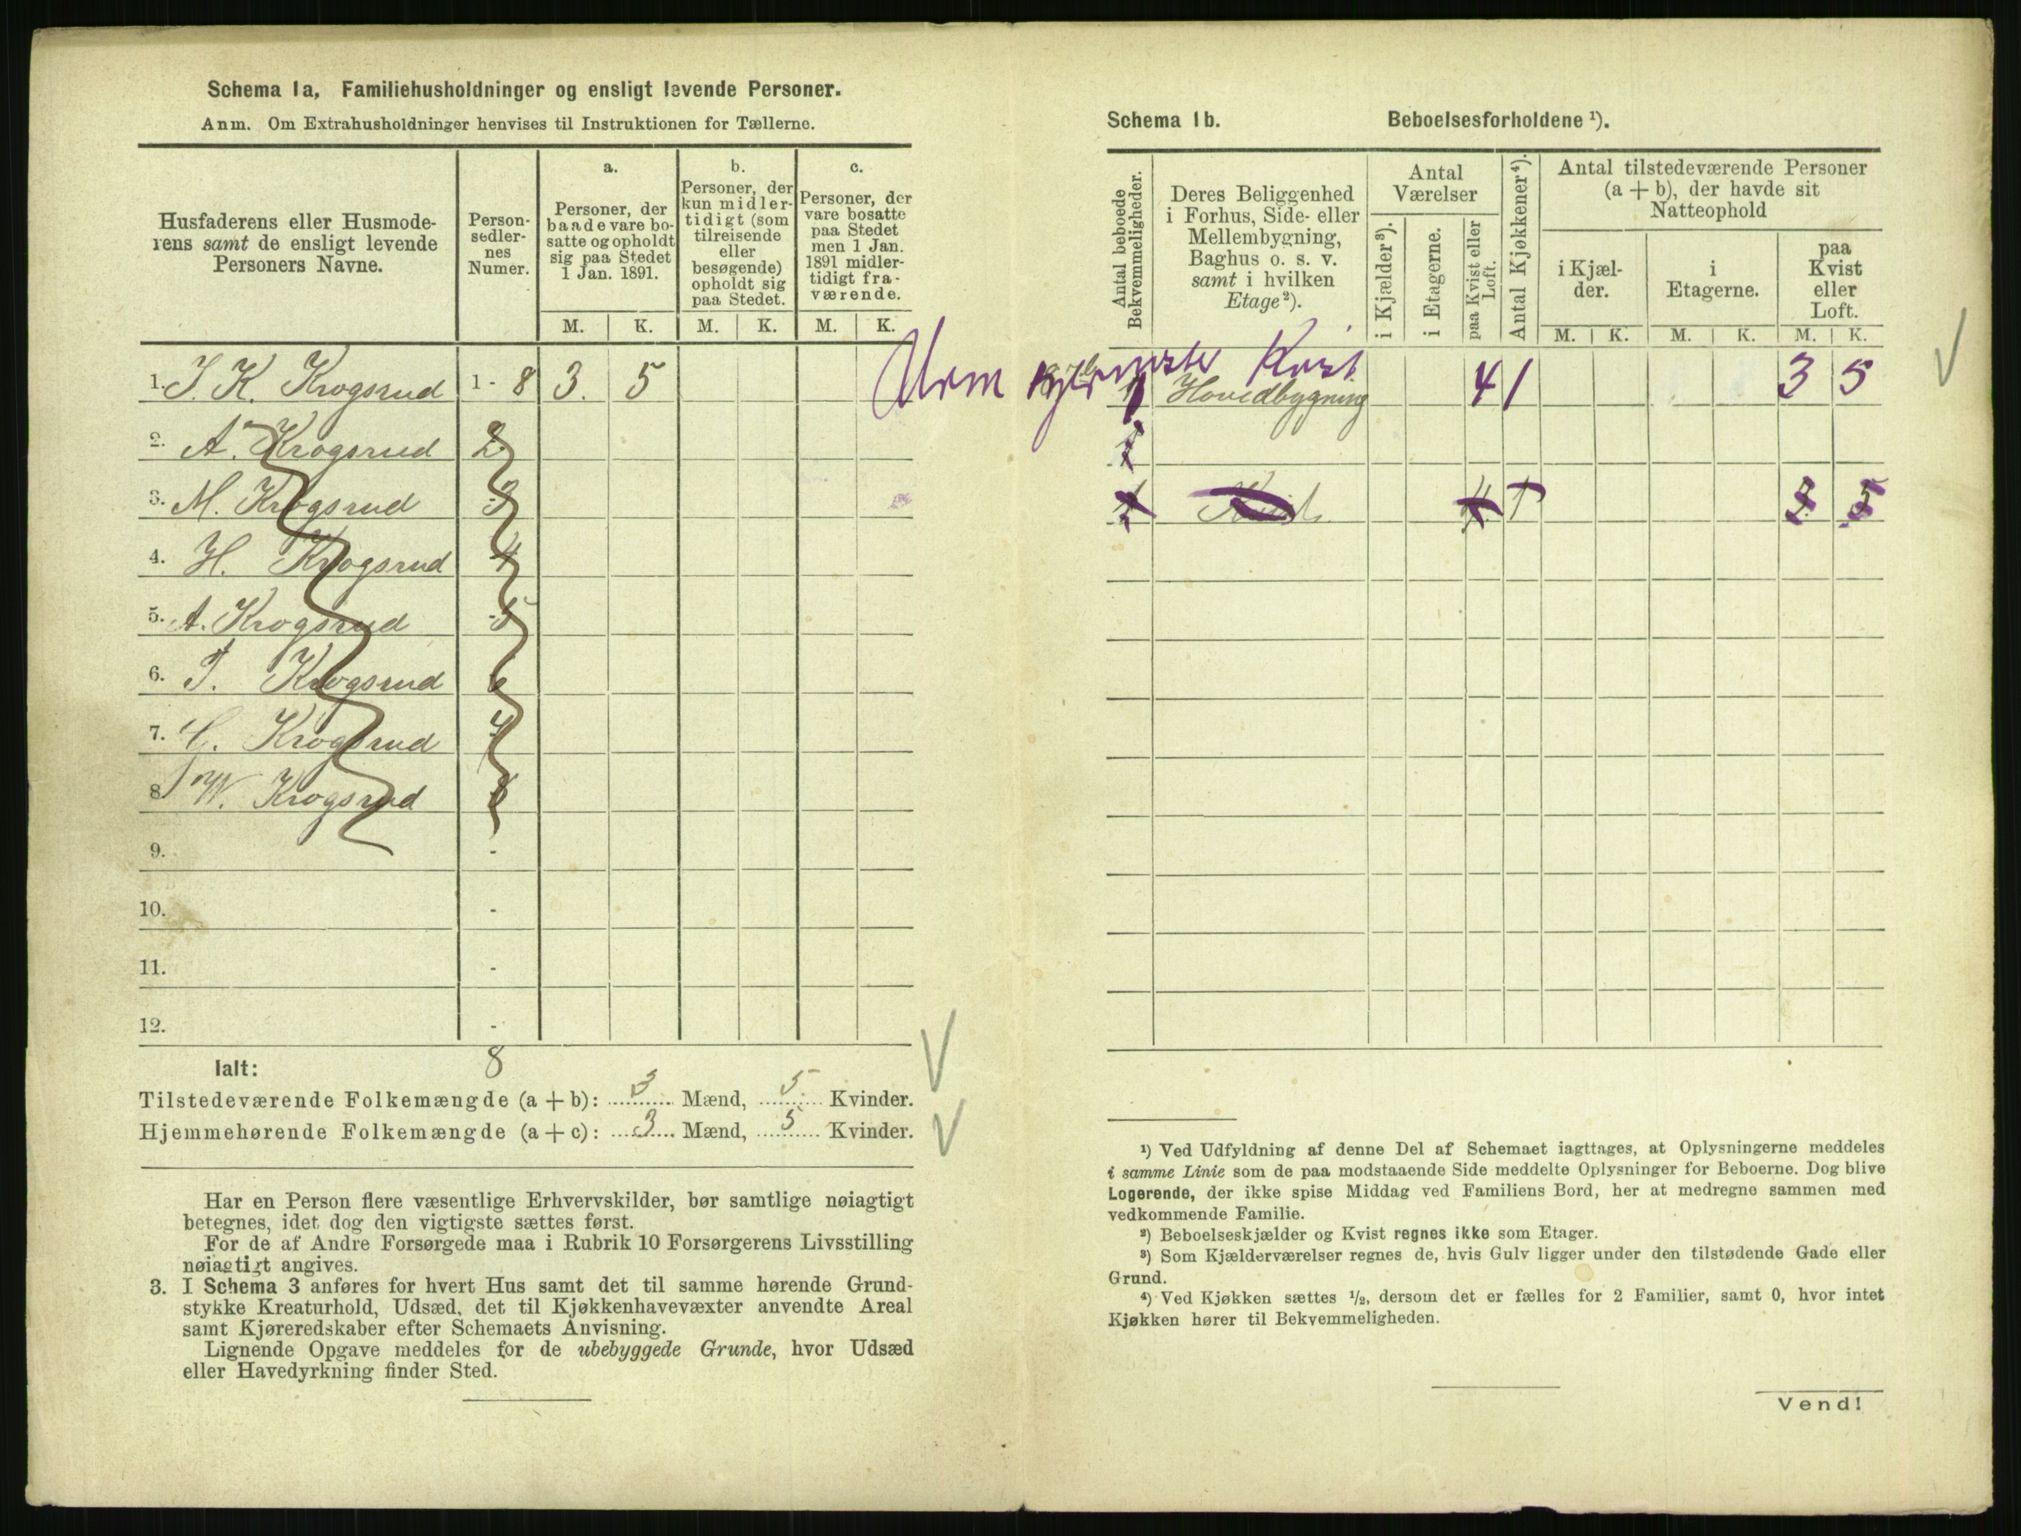 Schema 1a, Familiehusholdninger og ensligt levende Personer.
Anm. Om Extrahusholdninger henvises til Instruktionen for Tællerne.
Husfaderens eller Husmode-
rens samt de ensligt levende
Personers Navne.
Person-
sedler-
nes
Numer.
a.
Personer, der
baade vare bo-
satte og opholdt
sig paa Stedet
1 Jan. 1891.
b.
Personer, der
kun midler-
tidigt (som
tilreisende
eller
besøgende)
opholdt sig
paa Stedet.
c.
Personer, der
vare bosatte
paa Stedet
men 1 Jan.
1891 midler-
tidigt fra-
værende.
M. K. M. K. M. K.
1. J. K. Krogsrud 1 - 8 3. 5
2. A. Krogsrud 2
3. M. Krogsrud - 3
4. H. Krogsrud - 4
5. A. Krogsrud - 5
6. T. Krogsrud 6
7. G. Krogsrud 7
8. W. Krogsrud 8
9. -
10. -
11. -
12. -
Ialt: 8
Tilstedeværende Folkemængde (a + b): 3 Mænd, 5 Kvinder.
Hjemmehørende Folkemængde (a + c): 3 Mænd, 5 Kvinder.
Har en Person flere væsentlige Erhvervskilder, bør samtlige nøiagtigt
betegnes, idet dog den vigtigste sættes først.
For de af Andre Forsørgede maa i Rubrik 10 Forsørgerens Livsstilling
nøiagtigt angives.
3. I Schema 3 anføres for hvert Hus samt det til samme hørende Grund-
stykke Kreaturhold, Udsæd, det til Kjøkkenhavevæxter anvendte Areal
samt Kjøreredskaber efter Schemaets Anvisning.
Lignende Opgave meddeles for de ubebyggede Grunde, hvor Udsæd
eller Havedyrkning finder Sted.
Schema 1b. Beboelsesforholdene ¹).
Antal beboede
Bekvemmeligheder.
Deres Beliggenhed
i Forhus, Side- eller
Mellembygning,
Baghus o. s. v.
samt i hvilken
Etage ²).
Antal
Værelser
i Kjælder ³).
i Etagerne.
paa Kvist eller
Loft.
Antal Kjøkkener ⁴).
Antal tilstedeværende Personer
(a + b), der havde sit
Natteophold
i Kjæl-
der.
i
Etagerne.
paa
Kvist
eller
Loft.
M. K. M. K. M. K.
Kvist
1 Hovedbygning 4 1 3 5
1
1 Kvist 4 1 3 5
¹) Ved Udfyldning af denne Del af Schemaet iagttages, at Oplysningerne meddeles
i samme Linie som de paa modstaaende Side meddelte Oplysninger for Beboerne. Dog blive
Logerende, der ikke spise Middag ved Familiens Bord, her at medregne sammen med
vedkommende Familie.
²) Beboelseskjælder og Kvist regnes ikke som Etager.
³) Som Kjælderværelser regnes de, hvis Gulv ligger under den tilstødende Gade eller
Grund.
⁴) Ved Kjøkken sættes ½, dersom det er fælles for 2 Familier, samt 0, hvor intet
Kjøkken hører til Bekvemmeligheden.
Vend!